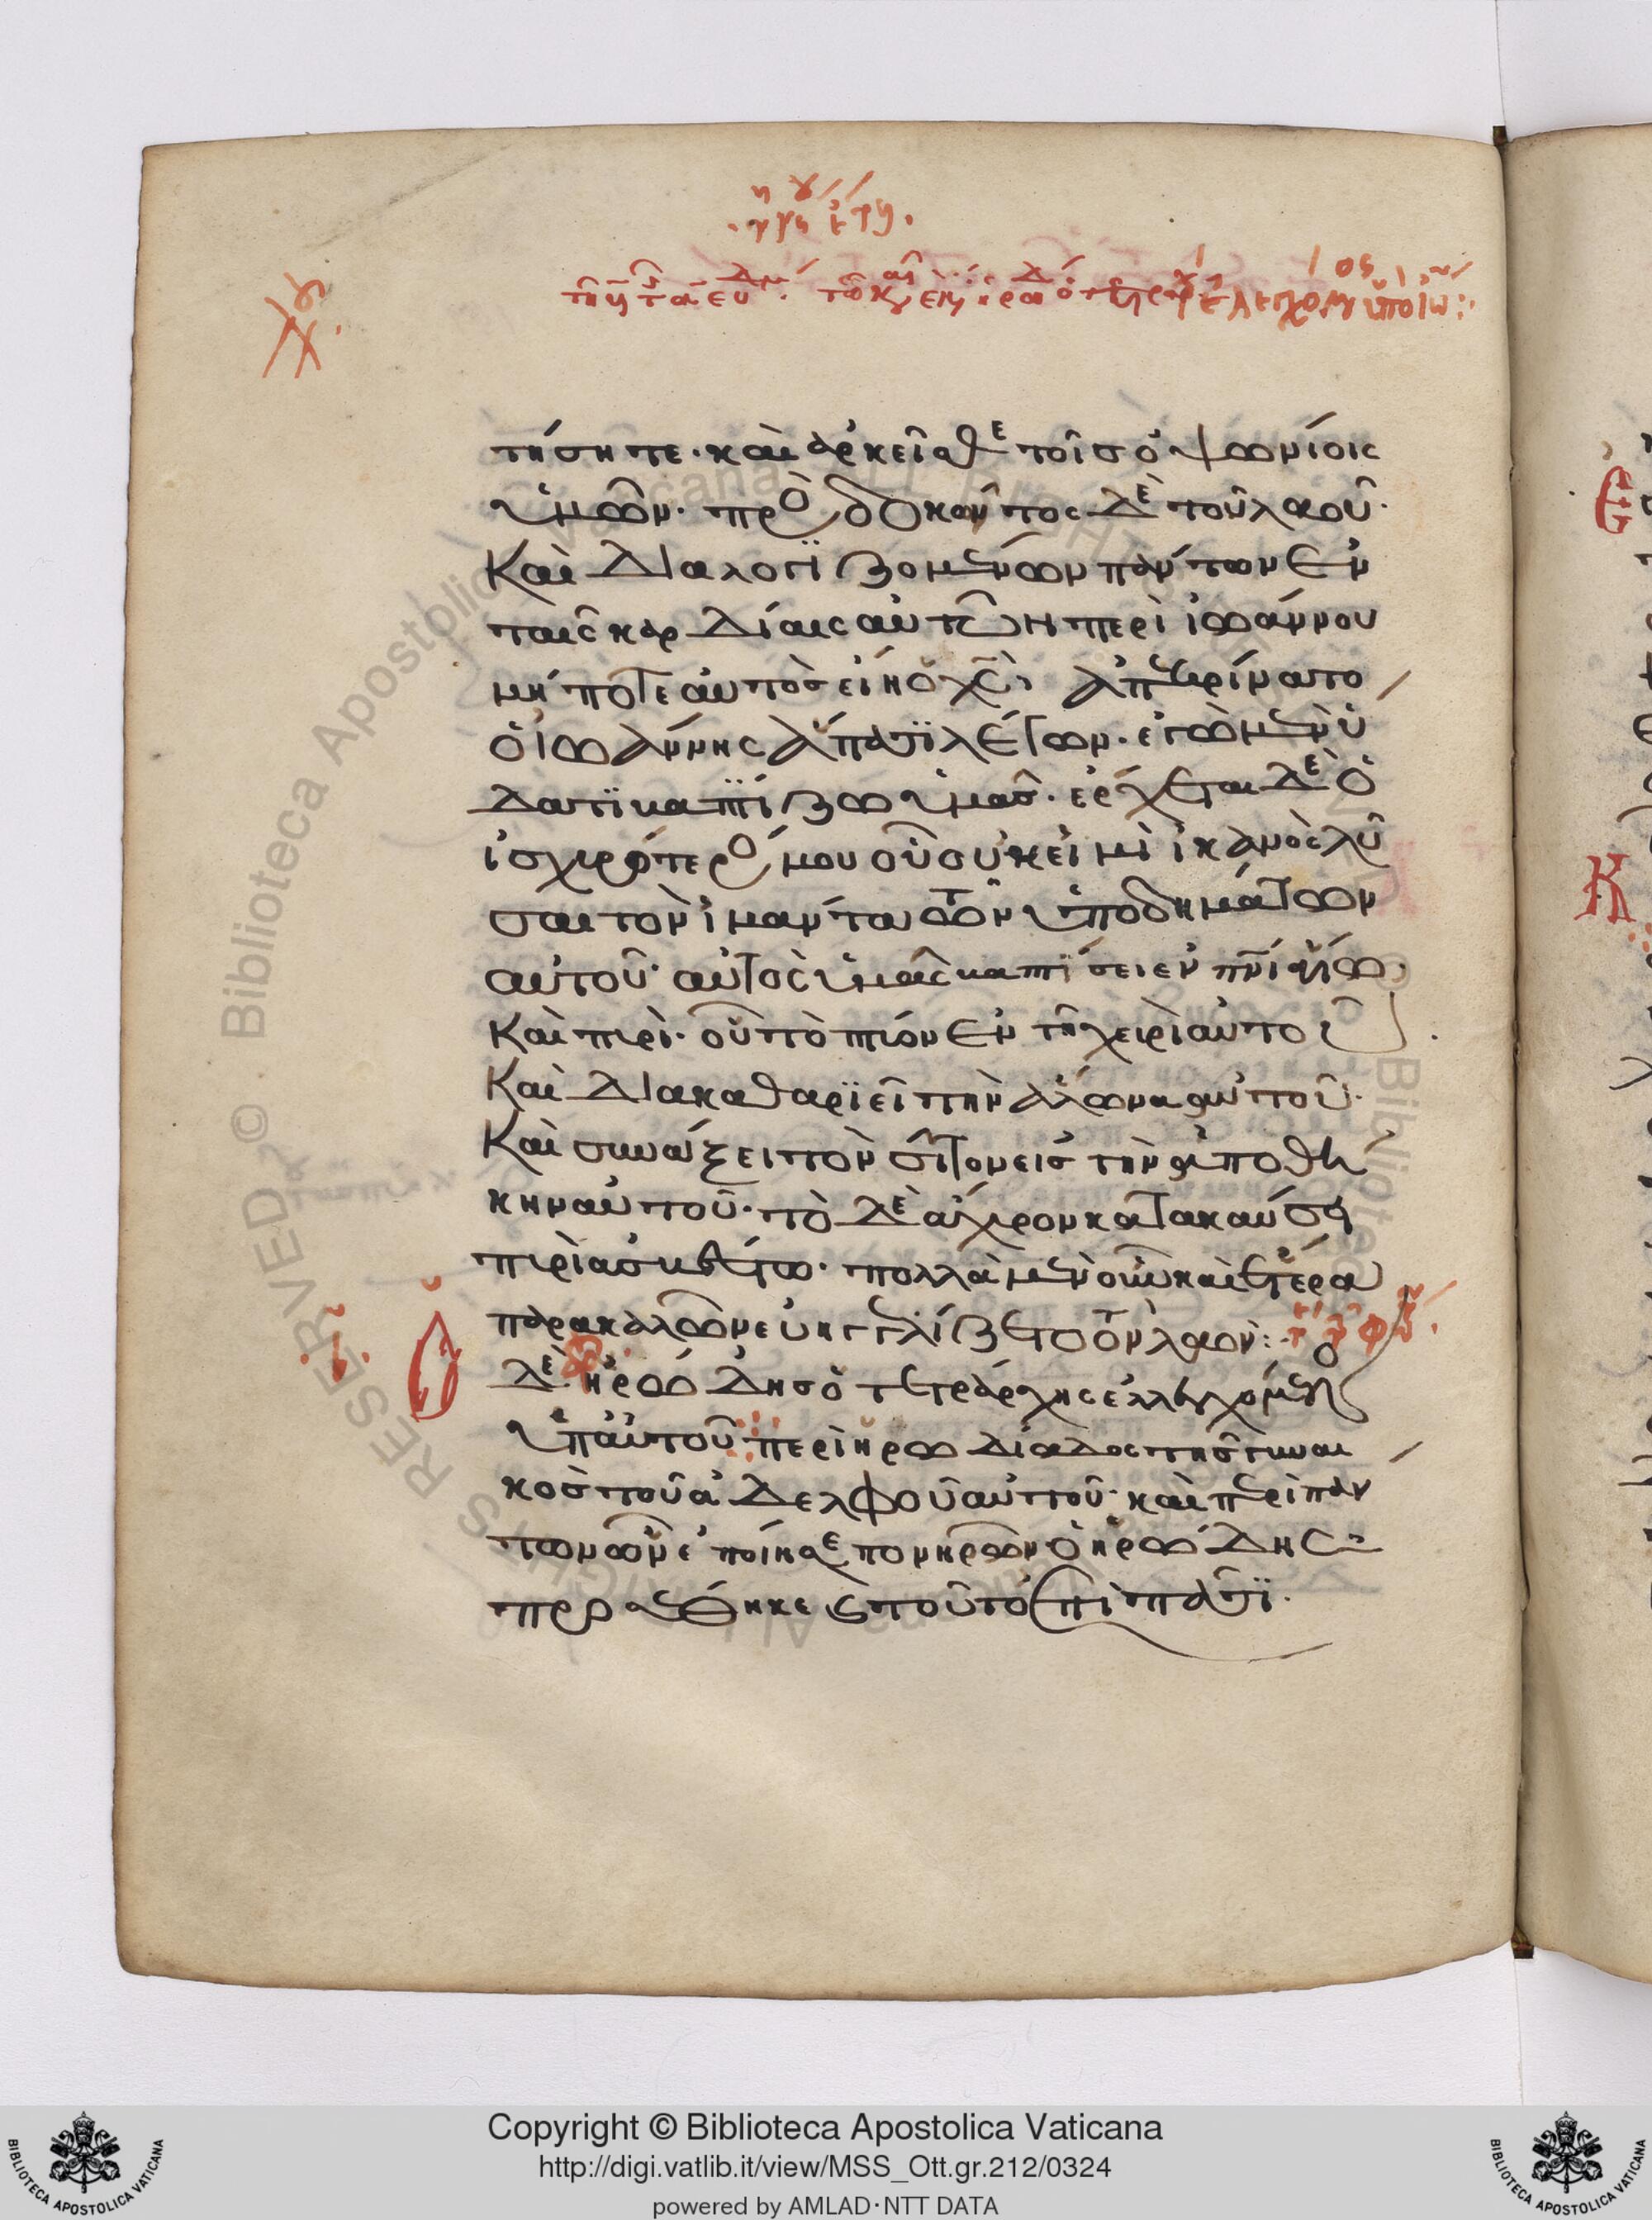 τήσητε· καὶ ἀρκεῖσθε τοῖς ὀψωνίοις
ὑμῶν· προσδοκῶντος δὲ τοῦ λαοῦ·
Καὶ διαλογϊζομένων πάντων ἐν
ταῖς καρδίαις αὐτῶν περὶ ἰωάννου
μήποτε αὐτὸς εἴη ὁ χς̄· ἀπεκρίνατο
ὁ ἰωάννης ἅπασϊ λέγων· ἐγὼ μὲν ὑ
δατϊ βαπτίζω ὑμᾶς· ἔρχεται δὲ ὁ
ἰσχυρότερός μου οὗ οὐκ εἰμὶ ἱκανὸς λῦ
σαι τὸν ἱμάντα τῶν ὑποδημάτων
αὐτοῦ· αὐτὸς ὑμᾶς βαπτίσει ἐν πνι ἁγίω·
Καὶ πυρὶ· οὗ τὸ πτύον ἐν τῆ χειρὶ αὐτοῦ
Καὶ διακαθαρϊεῖ τὴν ἅλωνα αὐτοῦ·
Καὶ συνάξει τὸν σῖτον εἰς τὴν ἀποθή
κην αὐτοῦ· τὸ δὲ ἄχυρον κατακαύσει
πυρὶ ἀσβέστω· πολλὰ μὲν οὖν καὶ ἕτερα
παρακαλῶν εὐηγγελίζετο τὸν λαόν:
Ὁ δὲ ἡρώδης ὁ τετράρχης ἐλλεγχόμενος
ὑπ' αὐτοῦ περὶ ἡρωδϊάδος τῆς γυναι
κὸς τοῦ ἀδελφοῦ αὐτοῦ· καὶ περὶ πάν
των ὧν ἐποίησε πονηρῶν ὁ ἡρώδης
προσέθηκε καὶ τοῦτο ἐπὶ πᾶσϊ·
Copyright © Biblioteca Apostolica Vaticana
http://digi.vatlib.it/view/MSS_Ott.gr.212/0324
powered by AMLAD·NTT DATA
BIBLIOTECA APOSTOLICA VATICANA
BIBLIOTECA APOSTOLICA VATICANA